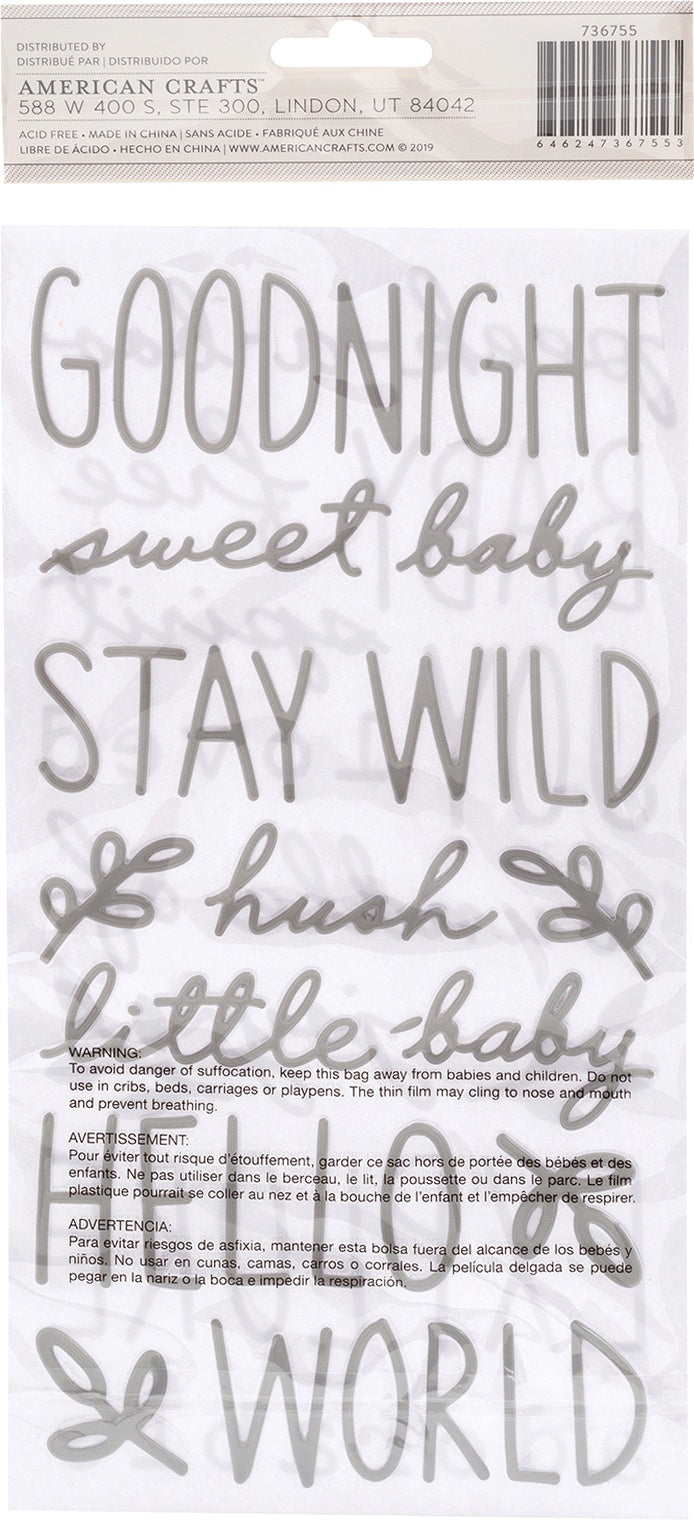 DISTRIBUTED BY
DISTRIBUÉ PAR | DISTRIBUIDO POR
AMERICAN CRAFTS™
588 W 400 S, STE 300, LINDON, UT 84042
ACID FREE • MADE IN CHINA | SANS ACIDE • FABRIQUÉ AUX CHINE
LIBRE DE ÁCIDO • HECHO EN CHINA | WWW.AMERICANCRAFTS.COM © 2019
736755
646247367553
GOODNIGHT
sweet baby
STAY WILD
hush
little baby
WARNING:
To avoid danger of suffocation, keep this bag away from babies and children. Do not
use in cribs, beds, carriages or playpens. The thin film may cling to nose and mouth
and prevent breathing.
AVERTISSEMENT:
Pour éviter tout risque d'étouffement, garder ce sac hors de portée des bébés et des
enfants. Ne pas utiliser dans le berceau, le lit, la poussette ou dans le parc. Le film
plastique pourrait se coller au nez et à la bouche de l'enfant et l'empêcher de respirer.
ADVERTENCIA:
Para evitar riesgos de asfixia, mantener esta bolsa fuera del alcance de los bebés y
niños. No usar en cunas, camas, carros o corrales. La película delgada se puede
pegar en la nariz o la boca e impedir la respiración.
HELLO
WORLD